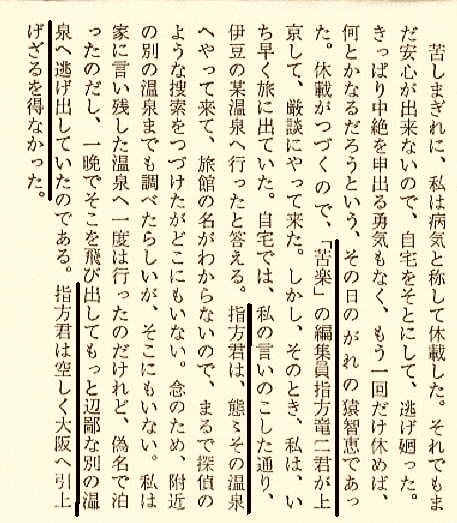 苦しまぎれに、私は病気と称して休載した。それでもま
だ安心が出来ないので、自宅をそとにして、逃げ廻った。
きっぱり中絶を申出る勇気もなく、もう一回だけ休めば、
何とかなるだろうという、その日のがれの猿智恵であっ
た。休載がつづくので、「苦楽」の編集員指方竜二君が上
京して、厳談にやって来た。しかし、そのとき、私は、い
ち早く旅に出ていた。自宅では、私の言いのこした通り、
伊豆の某温泉へ行ったと答える。指方君は、態〻その温泉
へやって来て、旅館の名がわからないので、まるで探偵の
ような捜索をつづけたがどこにもいない。念のため、附近
の別の温泉までも調べたらしいが、そこにもいない。私は
家に言い残した温泉へ一度は行ったのだけれど、偽名で泊
ったのだし、一晩でそこを飛び出してもっと辺鄙な別の温
泉へ逃げ出していたのである。指方君は空しく大阪へ引上
げざるを得なかった。